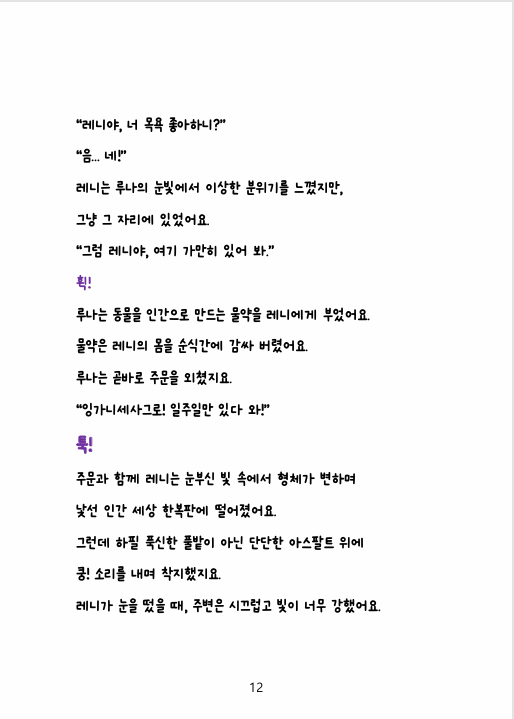 “레니야, 너 목욕 좋아하니?”
“음... 네!”
레니는 루나의 눈빛에서 이상한 분위기를 느꼈지만,
그냥 그 자리에 있었어요.
“그럼 레니야, 여기 가만히 있어 봐.”
휙!
루나는 동물을 인간으로 만드는 물약을 레니에게 부었어요.
물약은 레니의 몸을 순식간에 감싸 버렸어요.
루나는 곧바로 주문을 외쳤지요.
“잉가니세사그로! 일주일만 있다 와!”
툭!
주문과 함께 레니는 눈부신 빛 속에서 형체가 변하며
낯선 인간 세상 한복판에 떨어졌어요.
그런데 하필 푹신한 풀밭이 아닌 단단한 아스팔트 위에
쿵! 소리를 내며 착지했지요.
레니가 눈을 떴을 때, 주변은 시끄럽고 빛이 너무 강했어요.
12